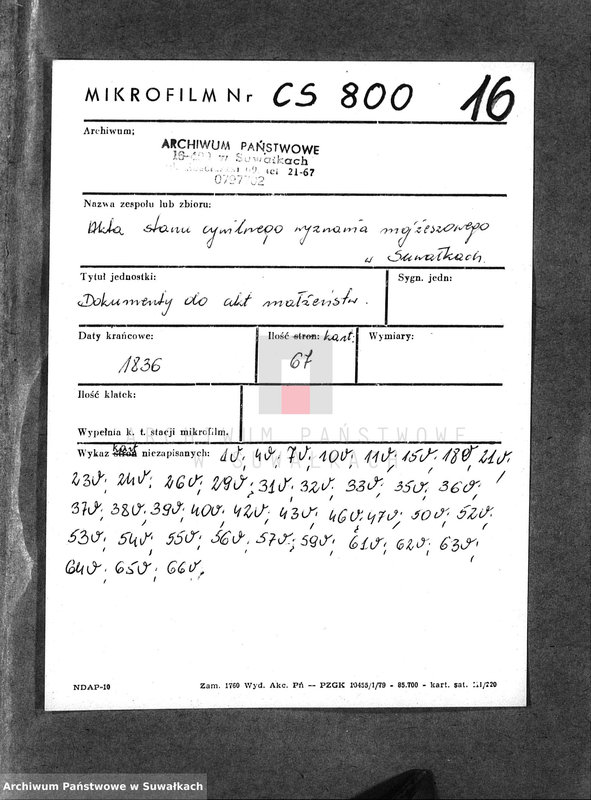 MIKROFILM Nr CS 800 16
Archiwum:
ARCHIWUM PAŃSTWOWE
16-400 w Suwałkach
tel 21-67
Nazwa zespołu lub zbioru:
Akta stanu cywilnego wyznania mojżeszowego
w Suwałkach.
Tytuł jednostki: Sygn. jedn:
Dokumenty do akt małżeństw.
Daty krańcowe: Ilość stron: kart: Wymiary:
1836 67
Ilość klatek:
Wypełnia k. t. stacji mikrofilm.
ARCHIWUM PAŃSTWOWE
W SUWAŁKACH
Wykaz stron kart niezapisanych: 1v; 4v; 7v; 10v; 11v; 15v; 18v; 21v;
23v; 24v; 26v; 29v; 31v; 32v; 33v; 35v; 36v;
37v; 38v; 39v; 40v; 42v; 43v; 46v; 47v; 50v; 52v;
53v; 54v; 55v; 56v; 57v; 59v; 61v; 62v; 63v;
64v; 65v; 66v.
NDAP-10 Zam. 1760 Wyd. Akc. Pń — PZGK 10455/1/79 - 85.700 - kart. sat. III/220
Archiwum Państwowe w Suwałkach